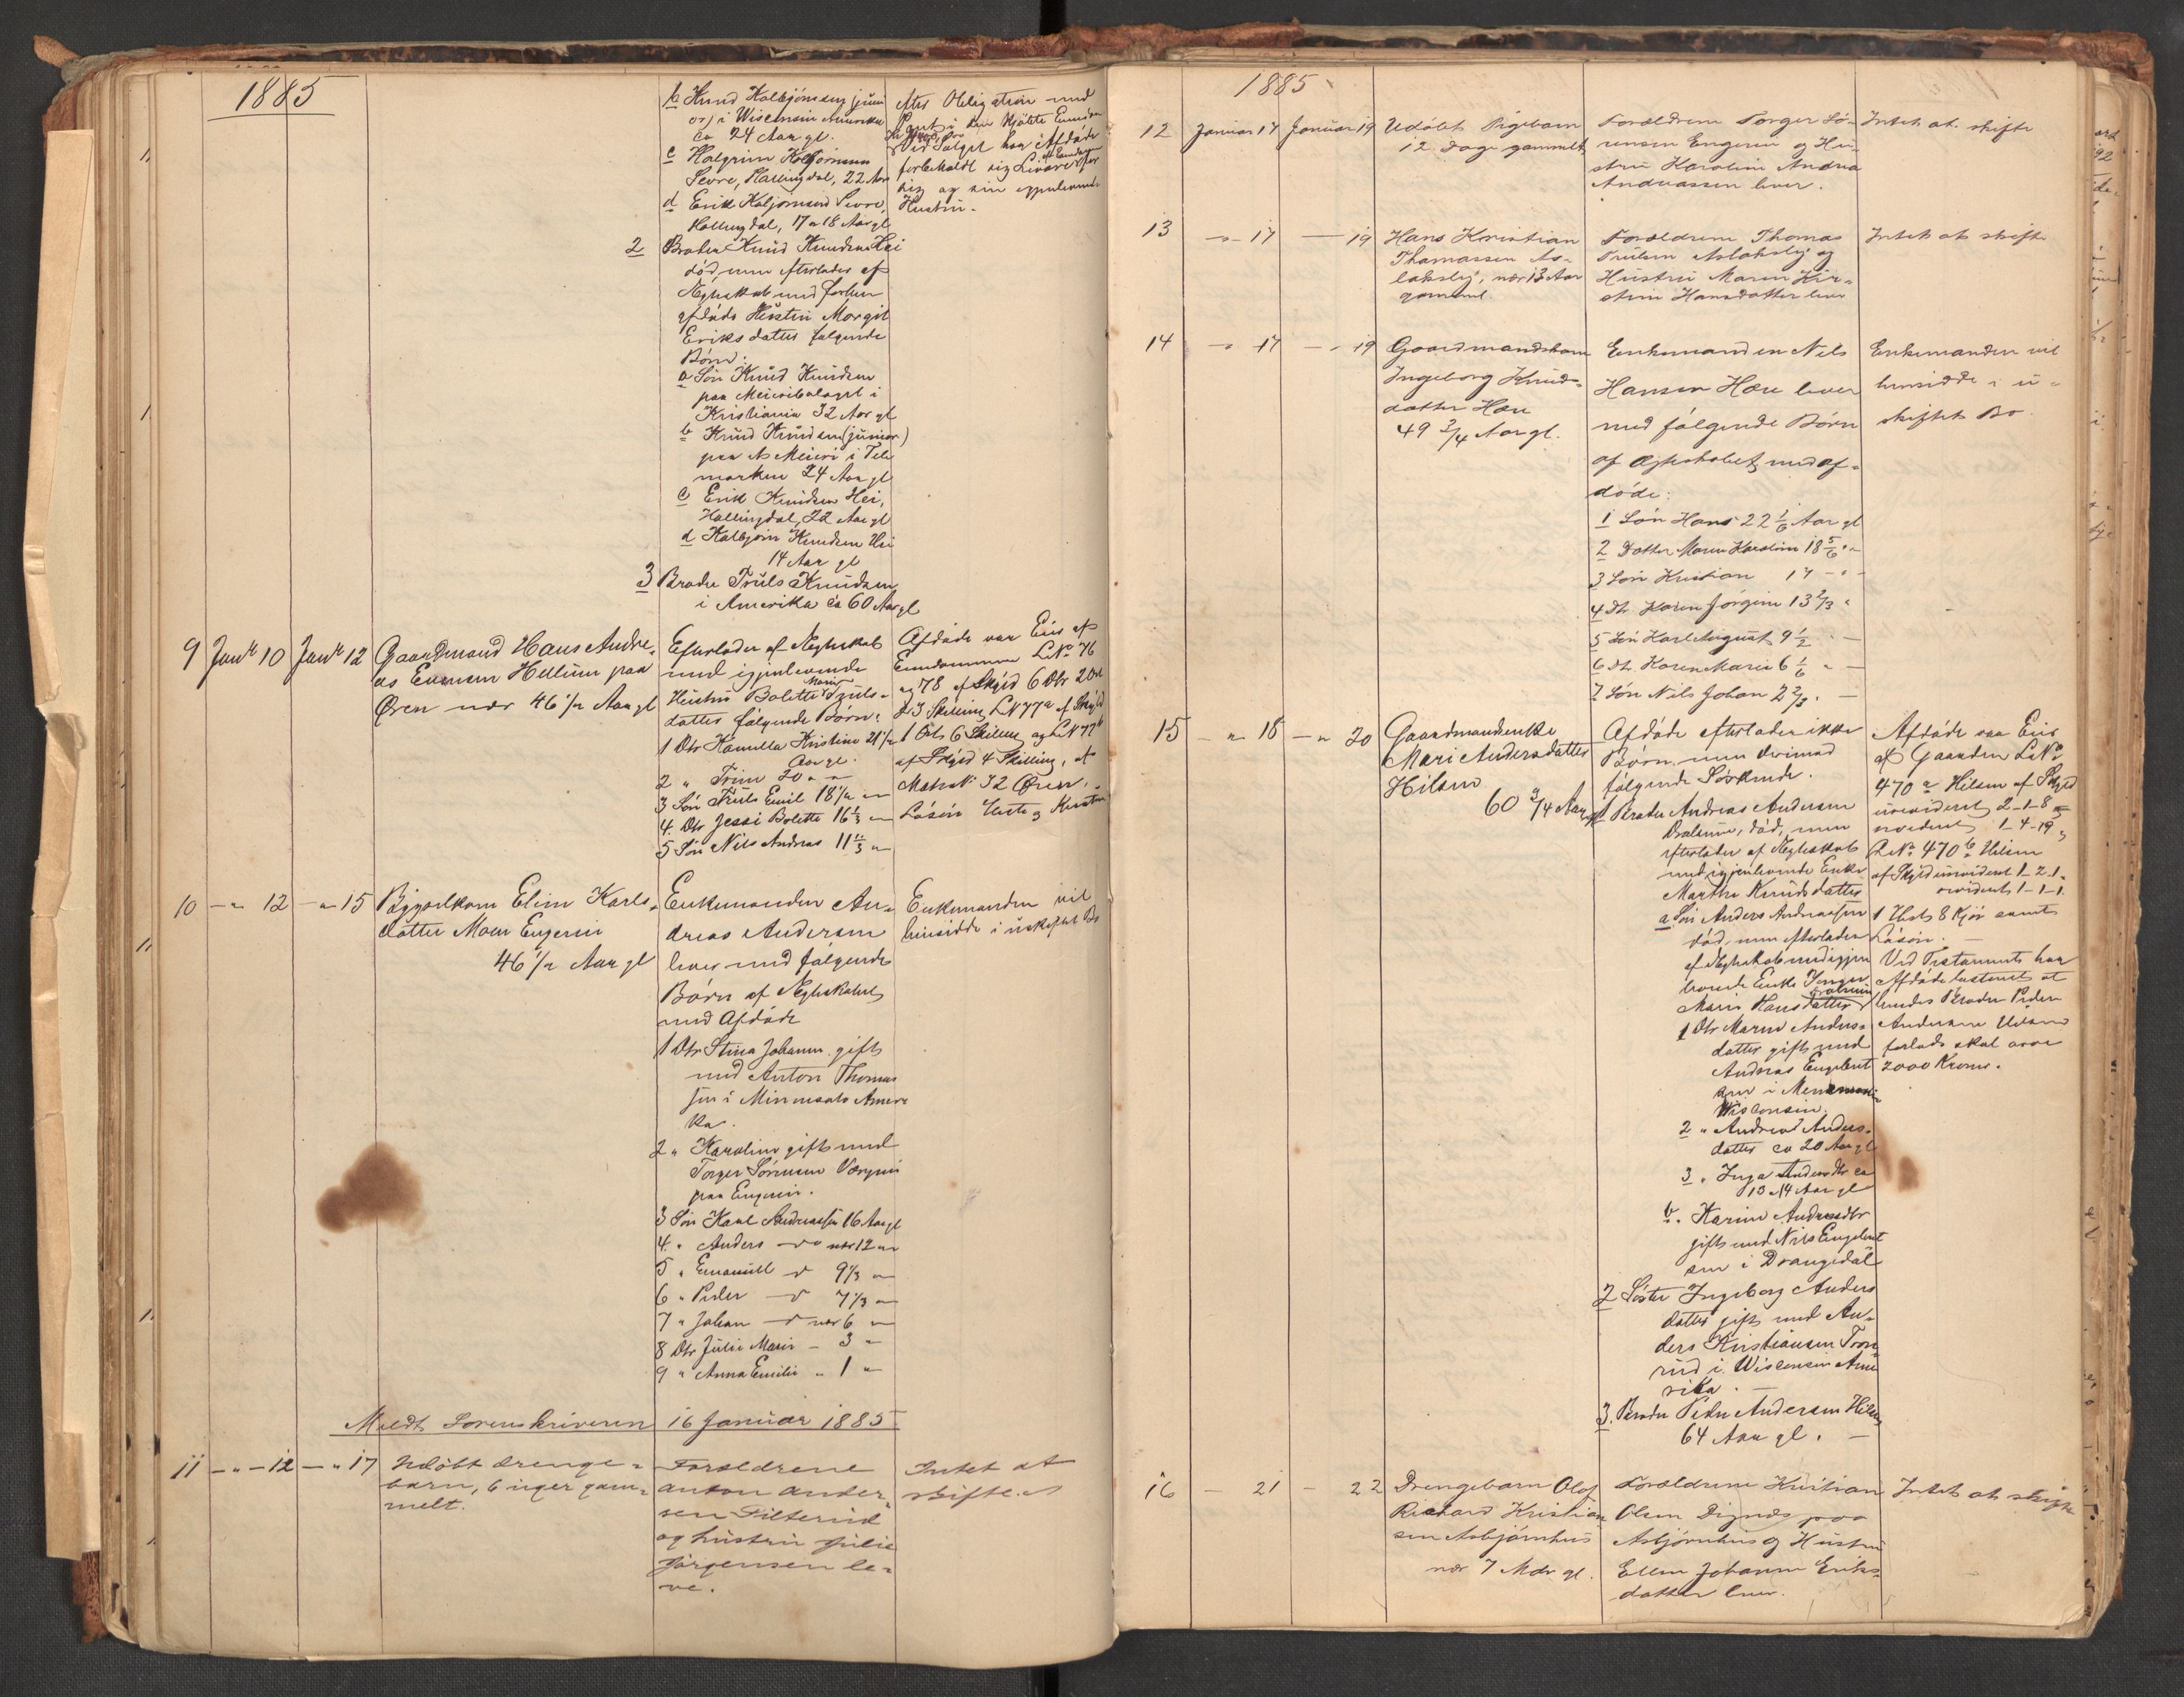 1885
b Knud Kolbjörnsen (juni
or) i Wisconsin Amerika
ca 24 Aar gl.
c Halgrim Kolbjörnsen
Sevre, Hallingdal, 22 Aar
d Erik Kolbjörnsen Sevre,
Hallingdal, 17 a 18 Aar gl
2 Broder Knud Knudsen Hei
död, men efterlader af
Ægteskab med forhen
afdöde Hustru Margit
Eriksdatter fölgende
Börn:
a Sön Knud Knudsen
paa Meieribolaget i
Kristiania 32 Aar gl
b Knud Knudsen (junior)
paa Meieri i Tele
marken 24 Aar gl
c Erik Knudsen Hei,
Hallingdal, 22 Aar gl
d Kolbjörn Knudsen Hei
14 Aar gl
3 Broder Truls Knudsen
i Amerika ca 60 Aar gl
efter Obligation med
Pant i den
Ved Salget har Afdöde
forbeholdt sig Livöre af Eiendommen for
sig og sin gjenlevende
Hustru.
9 Janr 10 Janr 12 Gaardmand Hans Andre-
as Evensen Hellum paa
Ören nær 46 1/2 Aar gl
Efterlader af Ægteskab
med igjenlevende
Hustru Bolette Marie Truls-
datter fölgende Börn:
1 Dtr Kamilla Kristine 21 1/2
Aar gl.
2 " Trine 20 " "
3 Sön Truls Emil 18 1/2 "
4. Dtr Jessi Bolette 16 1/3 "
5 Sön Nils Andreas 11 1/3 "
Afdöde var Eier af
Eiendommene LNo 76
og 78 af Skyld 6 Dlr 2 Ort
23 Skilling, LN 77a af Skyld
1 Ort 6 Skilling og LN 77b
af Skyld 4 Skilling, af
Matr N 32 Ören.
Lösöre Heste og Kreaturer
10 — " 12 — " 15 Bygselkone Elina Karls-
datter Moen Engern
46 1/2 Aar gl
Enkemanden An-
dreas Andersen
lever med fölgende
Börn af Ægteskabet
med Afdöde
1 Dtr Stina Johanne gift
med Anton Thomas
sen i Minnesota Ameri
ka.
2 " Karoline gift med
Torger Sörensen
paa Engern.
3 Sön Karl Andreassen 16 Aar gl
4. " Anders — nær 12 "
5 " Emanuel — 9 1/3 "
6 " Peder — 7 1/3 "
7 " Johan — nær 6 "
8 Dtr Julie Marie — 3 "
9 " Anna Emilie " 1 "
Enkemanden vil
hensidde i uskiftet Bo
Meldt Sorenskriveren 16 Januar 1885
11 — " — 12 — " 17 Udöbt drenge-
barn, 6 uger gam-
melt.
Foreldrene
Anton Ander-
sen Filterud
og hustru Julie
Jörgensen le-
ve.
Intet at
skifte.
1885
12 Januar 17 Januar 19 Udöbt Pigebarn
12 Dage gammelt
Foreldrene Torger Sö-
rensen Engern og Hu-
stru Karoline Andrea
Andreassen lever.
Intet at skifte
13 — " 17 — 19 Hans Kristian
Thomassen As-
lakslej, nær 13 Aar
gammel.
Foreldrene Thomas
Trulsen Aslakslej og
Hustru Maren Kir-
stine Hansdatter lever
Intet at skifte
14 — " 17 — " 19 Gaardmandskone
Ingeborg Knuds-
datter Hære
49 3/4 Aar gl.
Enkemanden Nils
Hansen Hære lever
med fölgende Börn
af Ægteskabet med af-
döde:
1 Sön Hans 22 1/6 Aar gl
2 Datter Maren Karoline 18 5/6 " "
3 Sön Kristian 17 — " -
4 Dtr. Karen Jörgine 13 2/3 "
5 Sön Karl August 9 1/2 " —
6 Dtr. Karen Marie 6 1/6 " —
7 Sön Nils Johan 2 2/3 . —
Enkemanden vil
hensidde i u-
skiftet Bo
15 — " 18 — " 20 Gaardmandsenke
Mari Andersdatter
Hilsen
60 3/4 Aar gl
Afdöde efterlader ikke
Börn, men derimod
fölgende Söskende.
1 Broder Andreas Andersen
Bralerud, död, men
efterlader af Ægteskab
med igjenlevende Enke
Marthe Knudsdatter
a. Sön Anders Andreassen
död, men efterlader
af Ægteskab med igjen
levende Enke Inger
Marie Hansdatter
1 Dtr Maren Anders-
datter gift med
Andreas Engebret
sen i Menomonie
Wisconsin.
2 " Andrea Anders-
datter ca 20 Aar gl
3 " Inga Andersdtr ca
13 a 14 Aar gl
b. Karine Andreasdtr
gift med Nils Engebret
sen i Drangedal
2 Söster Ingeborg Anders
datter gift med An-
ders Kristiansen Tron
rud i Wisconsin Ame
rika. —
3. Broder Peder Andersen Hilsen
64 Aar gl. —
Afdöde var Eier
af Gaarden LNo
470a Hilsen af Skyld
urevideret 2-1-8
revideret 1-4-19,
LNo 470b Hilsen
af Skyld urevideret 1-2-1.
revideret 1-1-1.
1 Hest 8 Kjör samt
Lösöre. —
Ved Testament har
Afdöde bestemt at
hendes Broder Peder
Andersen Hilsen
forlods skal arve
2000 Kroner.
16 — 21 — 22 Drengebarn Olaf
Richard Kristian
sen Asbjörnhus
nær 7 Mdr gl.
Foreldrene Kristian
Olsen Dignæs paa
Asbjörnhus og Hustru
Ellen Johanne Eriks-
datter lever.
Intet at skifte